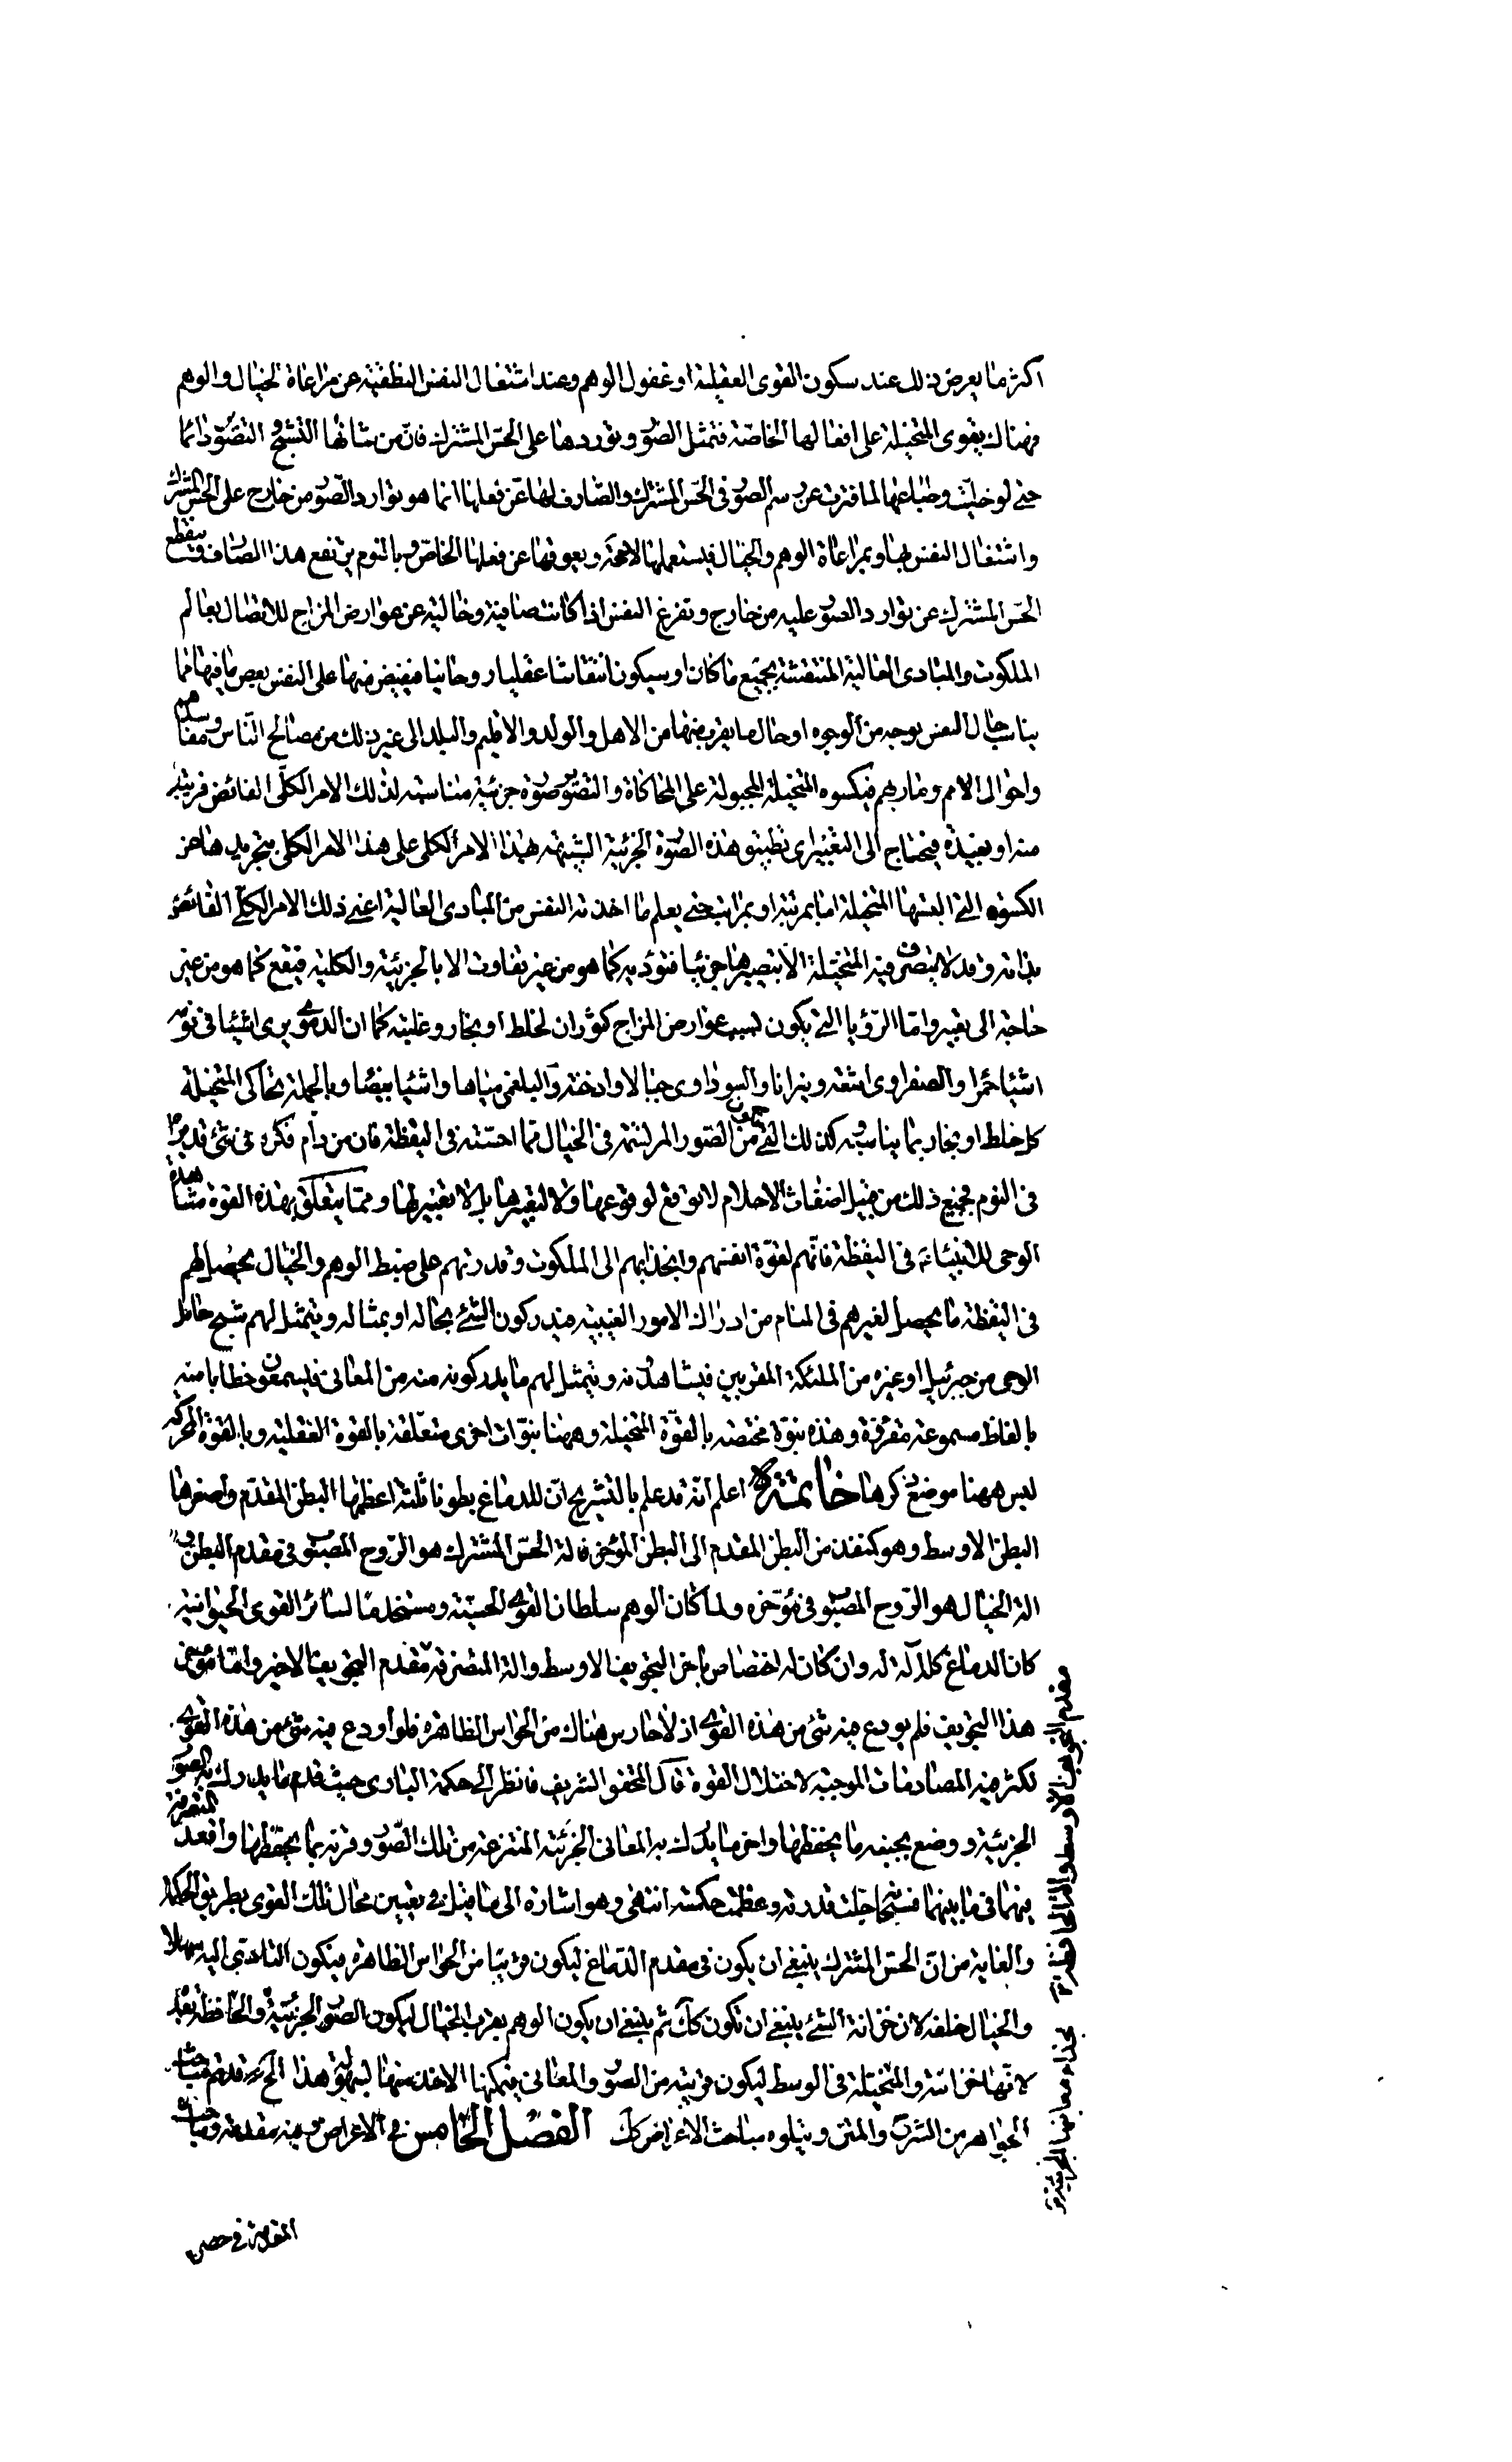 اكثر ما يعرض ذلك عند سكون القوى العقلية او غفول الوهم وعند اشتغال النفس النطقية عن مراعاة الخيال والوهم
فهناك يقوى المتخيلة على افعالها الخاصة فتمثل الصور وتوردها على الحس المشترك فان من شانها التشبح والتصور دائما
حتى لو خليت وطباعها لما فترت عن رسم الصور فى الحس المشترك والصارف لها عن فعلها انما هو توارد الصور من خارج على الحس المشترك
واشتغال النفس بها وبمراعاة الوهم والخيال فيستعملها لا محة ويعوقها عن فعلها الخاص وبالنوم يرتفع هذا الصارف وينقطع
الحس المشترك عن توارد الصور عليه من خارج وتفرغ النفس اذا كانت صافية وخالية عن عوارض المزاج للاتصال بعالم
الملكوت والمبادى العالية المنتقشة بجميع ما كان او سيكون انتقاشا عقليا روحانيا فيفيض منها على النفس بعض ما فيها مما
يناسب حال النفس بوجه من الوجوه او حال ما يقرب منها من الاهل والولد والاقليم والبلد الى غير ذلك من مصالح الناس ومفاسدهم
واحوال الامم ومآربهم فيكسوه المتخيلة المجبولة على المحاكاة والتصوير صورة جزئية مناسبة لذلك الامر الكلى الفائض قريبة
منه او بعيدة فيحتاج الى التعبير اى تطبيق هذه الصورة الجزئية الشبيهة بهذا الامر الكلى على هذا الامر الكلى بتجريدها عن
الكسوة التى البستها المتخيلة اما بمرتبة او بمراتب حتى يعلم ما اخذته النفس من المبادى العالية اعنى ذلك الامر الكلى الفائض
بذاته وقد لا يتصرف فيه المتخيلة الا بتصييرها جزئيا فتؤديه كما هو من غير تفاوت الا بالجزئية والكلية فيقع كما هو من غير
حاجة الى تعبير واما الرؤيا التى يكون لسبب عوارض المزاج كثوران لخلط او بخار وغلبته كما ان الدموى يرى اشيئا فى نومه
اشيئا حمرا والصفراوى اشعة ونيرانا والسوداوى جبالا وادخنة والبلغمى مياها واشيئا بيضا وبالجملة تحاكى المتخيلة
كل خلط او بخار بما يناسبه وكذلك التى من جهة الصور المرتسمة فى الخيال مما احسته فى اليقظة فان من دام فكره فى شئ قد يراه
فى النوم فجميع ذلك من قبيل اضغاث الاحلام لا توقع لوقوعها ولا لتعبيرها بل لا تعبير لها ومما يتعلق بهذه القوة مشاهدة
الوحى للانبياء فى اليقظة فانهم لقوة انفسهم وانجذابهم الى الملكوت وقدرتهم على ضبط الوهم والخيال يحصل لهم
فى اليقظة ما يحصل لغيرهم فى المنام من ادراك الامور الغيبية فيدركون الشئ بحاله او بمثاله ويتمثل لهم شبح حامل
الوحى من جبرئيل او غيره من الملئكة المقربين فيشاهدونه ويتمثل لهم ما يدركونه منه من المعانى فيسمعون خطابا منه
بالفاظ مسموعة مقروة وهذه نبوة مختصة بالقوة المتخيلة وههنا نبوات اخرى متعلقة بالقوة العقلية وبالقوة المحركة
ليس ههنا موضع ذكرها خاتمة اعلم انه قد علم بالتشريح ان للدماغ بطونا ثلثة اعظمها البطن المقدم واصغرها
البطن الاوسط وهو كمنفذ من البطن المقدم الى البطن المؤخر فالة الحس المشترك هو الروح المصبوب فى مقدم البطن
الة الخيال هو الروح المصبوب فى مؤخره ولما كان الوهم سلطان القوى الحسية ومستخدما لسائر القوى الحيوانية
كان الدماغ كله آلة له وان كان له اختصاص باخر التجويف الاوسط والة المتصرفة مقدم التجويف الاخير واما مؤخر
هذا التجويف فلم يودع فيه شئ من هذه القوى اذ لا حارس هناك من الحواس الظاهرة فلو اودع فيه شئ من هذه القوى
لكثر فيه المصادمات الموجبة لاختلال القوة قال المحقق الشريف فانظر الى حكمة البارى حيث قدم ما يدرك به الصور
الجزئية ووضع بجنبه ما يحفظها واخر ما يدرك به المعانى الجزئية المنتزعة من تلك الصور وقرنه بما يحفظها واقعد المتصرفة
بينهما فى ما بينهما فسبحان جلت قدرته وعظمت حكمته انتهى وهو اشارة الى ما قيل فى تعيين محال تلك القوى بطريق الحكمة
والغاية من ان الحس المشترك ينبغى ان يكون فى مقدم الدماغ ليكون قريبا من الحواس الظاهرة فيكون التادى اليه سهلا
والخيال خلفه لان خزانة الشئ ينبغى ان تكون كك ثم ينبغى ان يكون الوهم بقرب الخيال ليكون الصور الجزئية والحافظة بعده
لانها خزانته والمتخيلة فى الوسط ليكون قريبة من الصور والمعانى فيمكنها الاخذ منهما بسهولة هذا الجزء قد تم مباحث
الجواهر من الشرح والمتن ويتلوه مباحث الاعراض كك الفصل الخامس فى الاعراض وفيه مقدمة ومباحث
مقدم التجويف الاوسط والة الحافظة
بحذاء معانيها الجزئية
المقدمة فى حصر